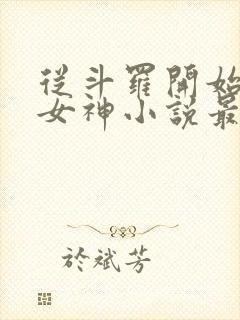 從斗羅開始
女神小說最
於斌芳